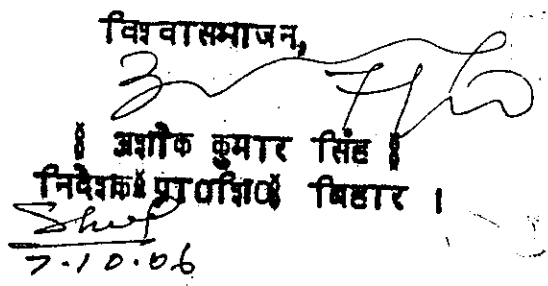 विश्वासभाजन,
( अशोक कुमार सिंह )
निदेशक(प्रा०शि०) बिहार ।
7.10.06